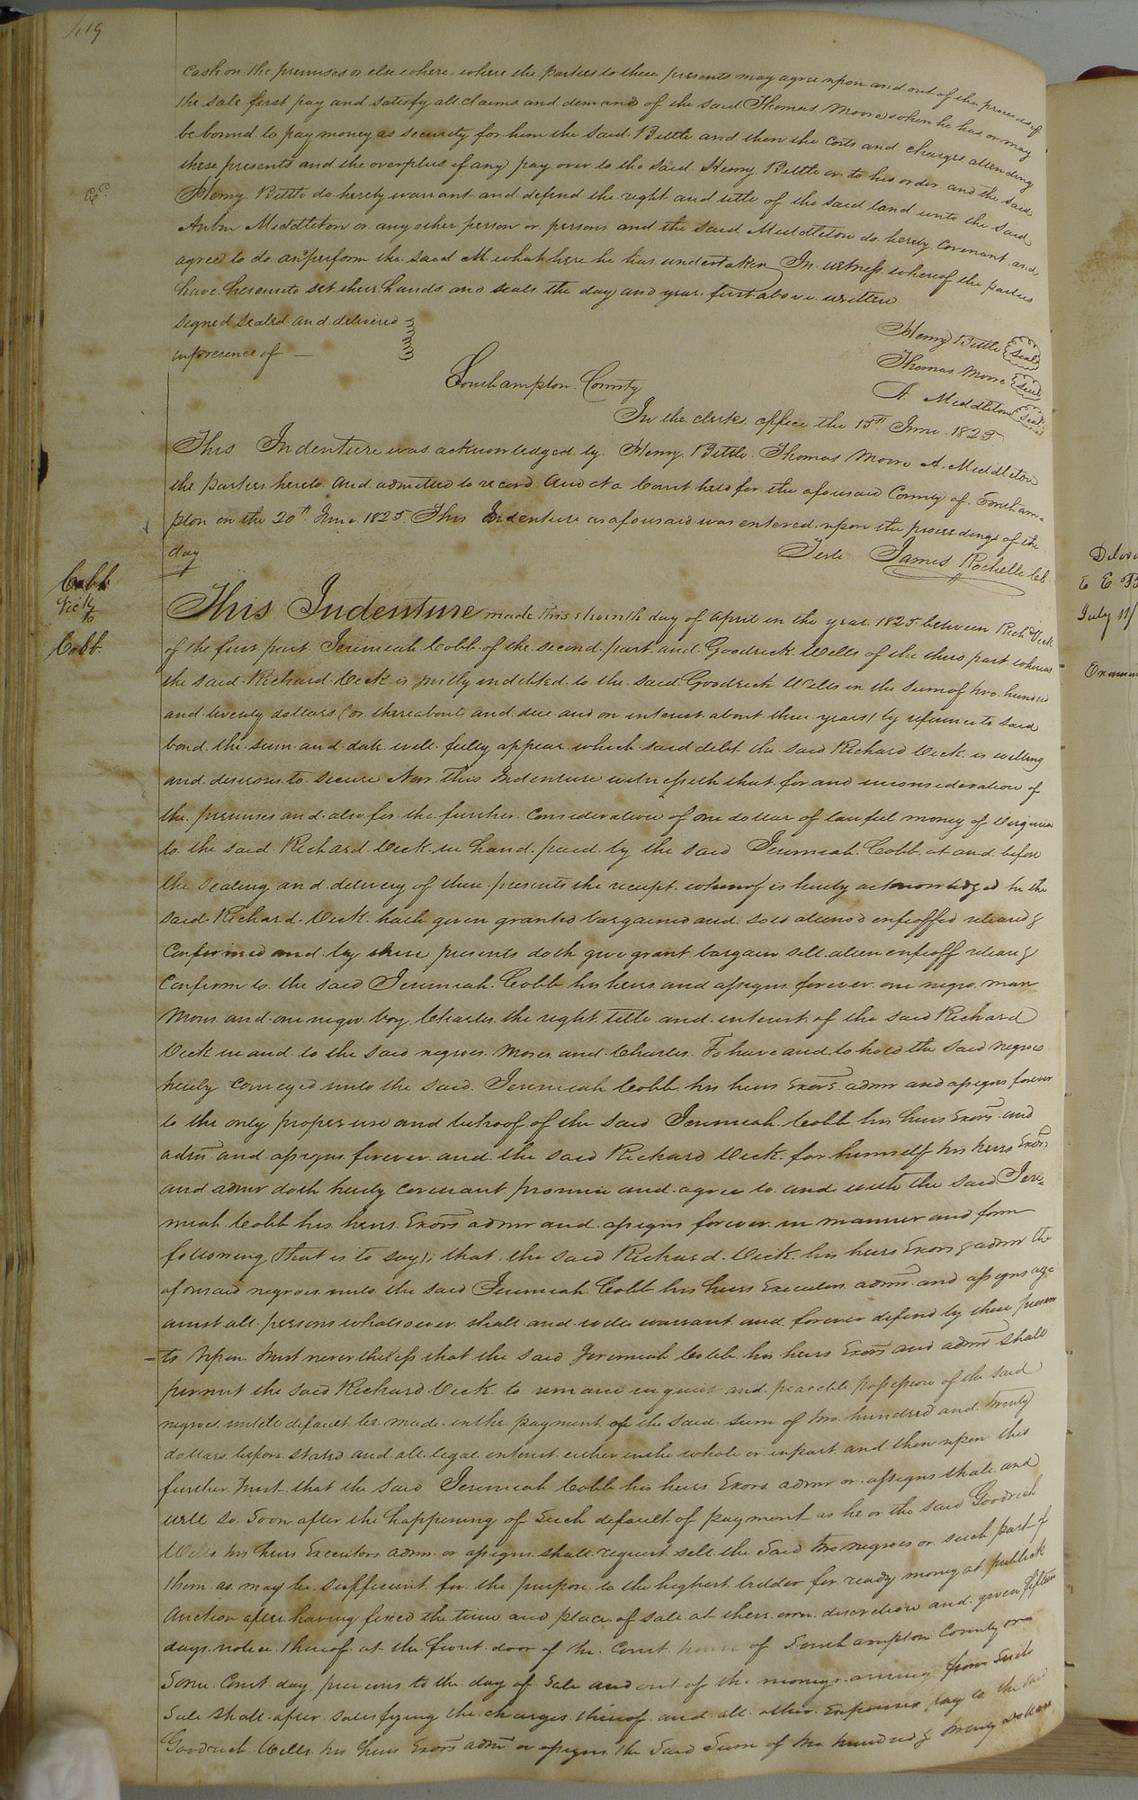 419
Cash on the premises or elsewhere where the parties to these presents may agree upon and out of the proceeds of
the sale first pay and satisfy all claims and demand of the said Thomas Moore when he has or may
be bound to pay money as security for him the said Bittle and then the costs and charges attending
these presents and the overplus if any pay over to the said Henry Bittle or to his order and the said
Henry Bittle do hereby warrant and defend the right and title of the said land unto the said
Middleton or any other person or persons and the said Middleton do hereby covenant and
agree to do and perform the said what here he has undertaken In witness whereof the parties
have hereunto set their hands and seals the day and year first above written
signed sealed and delivered
in presence of —
Henry Bittle seal
Thomas Moore seal
A Middleton seal
Southampton County
In the clerks office the 15th June 1825
This Indenture was acknowledged by Henry Bittle Thomas Moore A. Middleton
the parties hereto and admitted to record And at a Court held for the aforesaid County of Southam-
pton on the 20th June 1825 This Indenture as aforesaid was entered upon the proceedings of the
day
Teste James Rochelle
Cobb
Vick
to
Cobb
This Indenture made this day of April in the year 1825 between Richd Vick
of the first part Jeremiah Cobb of the second part and Goodrich Wells of the third part whereas
the said Richard Vick is justly indebted to the said Goodrich Wells in the sum of two hundred
and twenty dollars (or thereabouts and due and on interest about three years) by reference to said
bond the sum and date will fully appear which said debt the said Richard Vick is willing
and desirous to secure Now this Indenture witnesseth that for and in consideration of
the premises and also for the further consideration of one dollar of lawful money of Virginia
to the said Richard Vick in hand paid by the said Jeremiah Cobb at and before
the sealing and delivery of these presents the receipt whereof is hereby acknowledged he the
said Richard Vick hath given granted bargained and sold aliened enfeoffed released &
confirmed and by these presents doth give grant bargain sell alien enfeoff release &
Confirm to the said Jeremiah Cobb his heirs and assigns forever one negro man
Moses and one negro boy Charles the right title and interest of the said Richard
Vick in and to the said negroes Moses and Charles To have and to hold the said negroes
hereby conveyed unto the said Jeremiah Cobb his heirs Exors admr and assigns forever
to the only proper use and behoof of the said Jeremiah Cobb his heirs Exors and
admr and assigns forever and the said Richard Vick for himself his heirs Exors
and admr doth hereby covenant promise and agree to and with the said Jere-
miah Cobb his heirs Exors admr and assigns forever in manner and form
following (that is to say), that the said Richard Vick his heirs Exors & admr the
aforesaid negroes unto the said Jeremiah Cobb his heirs Executors admr and assigns aga
ainst all persons whatsoever shall and will warrant and forever defend by these presen
-ts Upon trust nevertheless that the said Jeremiah Cobb his heirs Exors and admr shall
permit the said Richard Vick to remain in quiet and peaceble possession of the said
negroes untill default be made in the payment of the said sum of two hundred and twenty
dollars before stated and all legal interest either in the whole or in part and then upon this
further trust that the said Jeremiah Cobb his heirs Exors admr or assigns shall and
will so soon after the happening of such default of payment as he or the said Goodrich
Wells his heirs Executors admr or assigns shall request sell the said two negroes or such part of
them as may be sufficient for the purpose to the highest bidder for ready money at publick
Auction after having fixed the time and place of sale at their own discretion and given fifteen
days notice thereof at the front door of the Court house of Southampton County on
Some Court day previous to the day of Sale and out of the moneys arising from Such
Sale shall after satisfying the charges thereof and all other Expences pay to the said
Goodrich Wells his heirs Exors admr or assigns the Said Sum of two hundred & twenty dollars
to E
July 11/